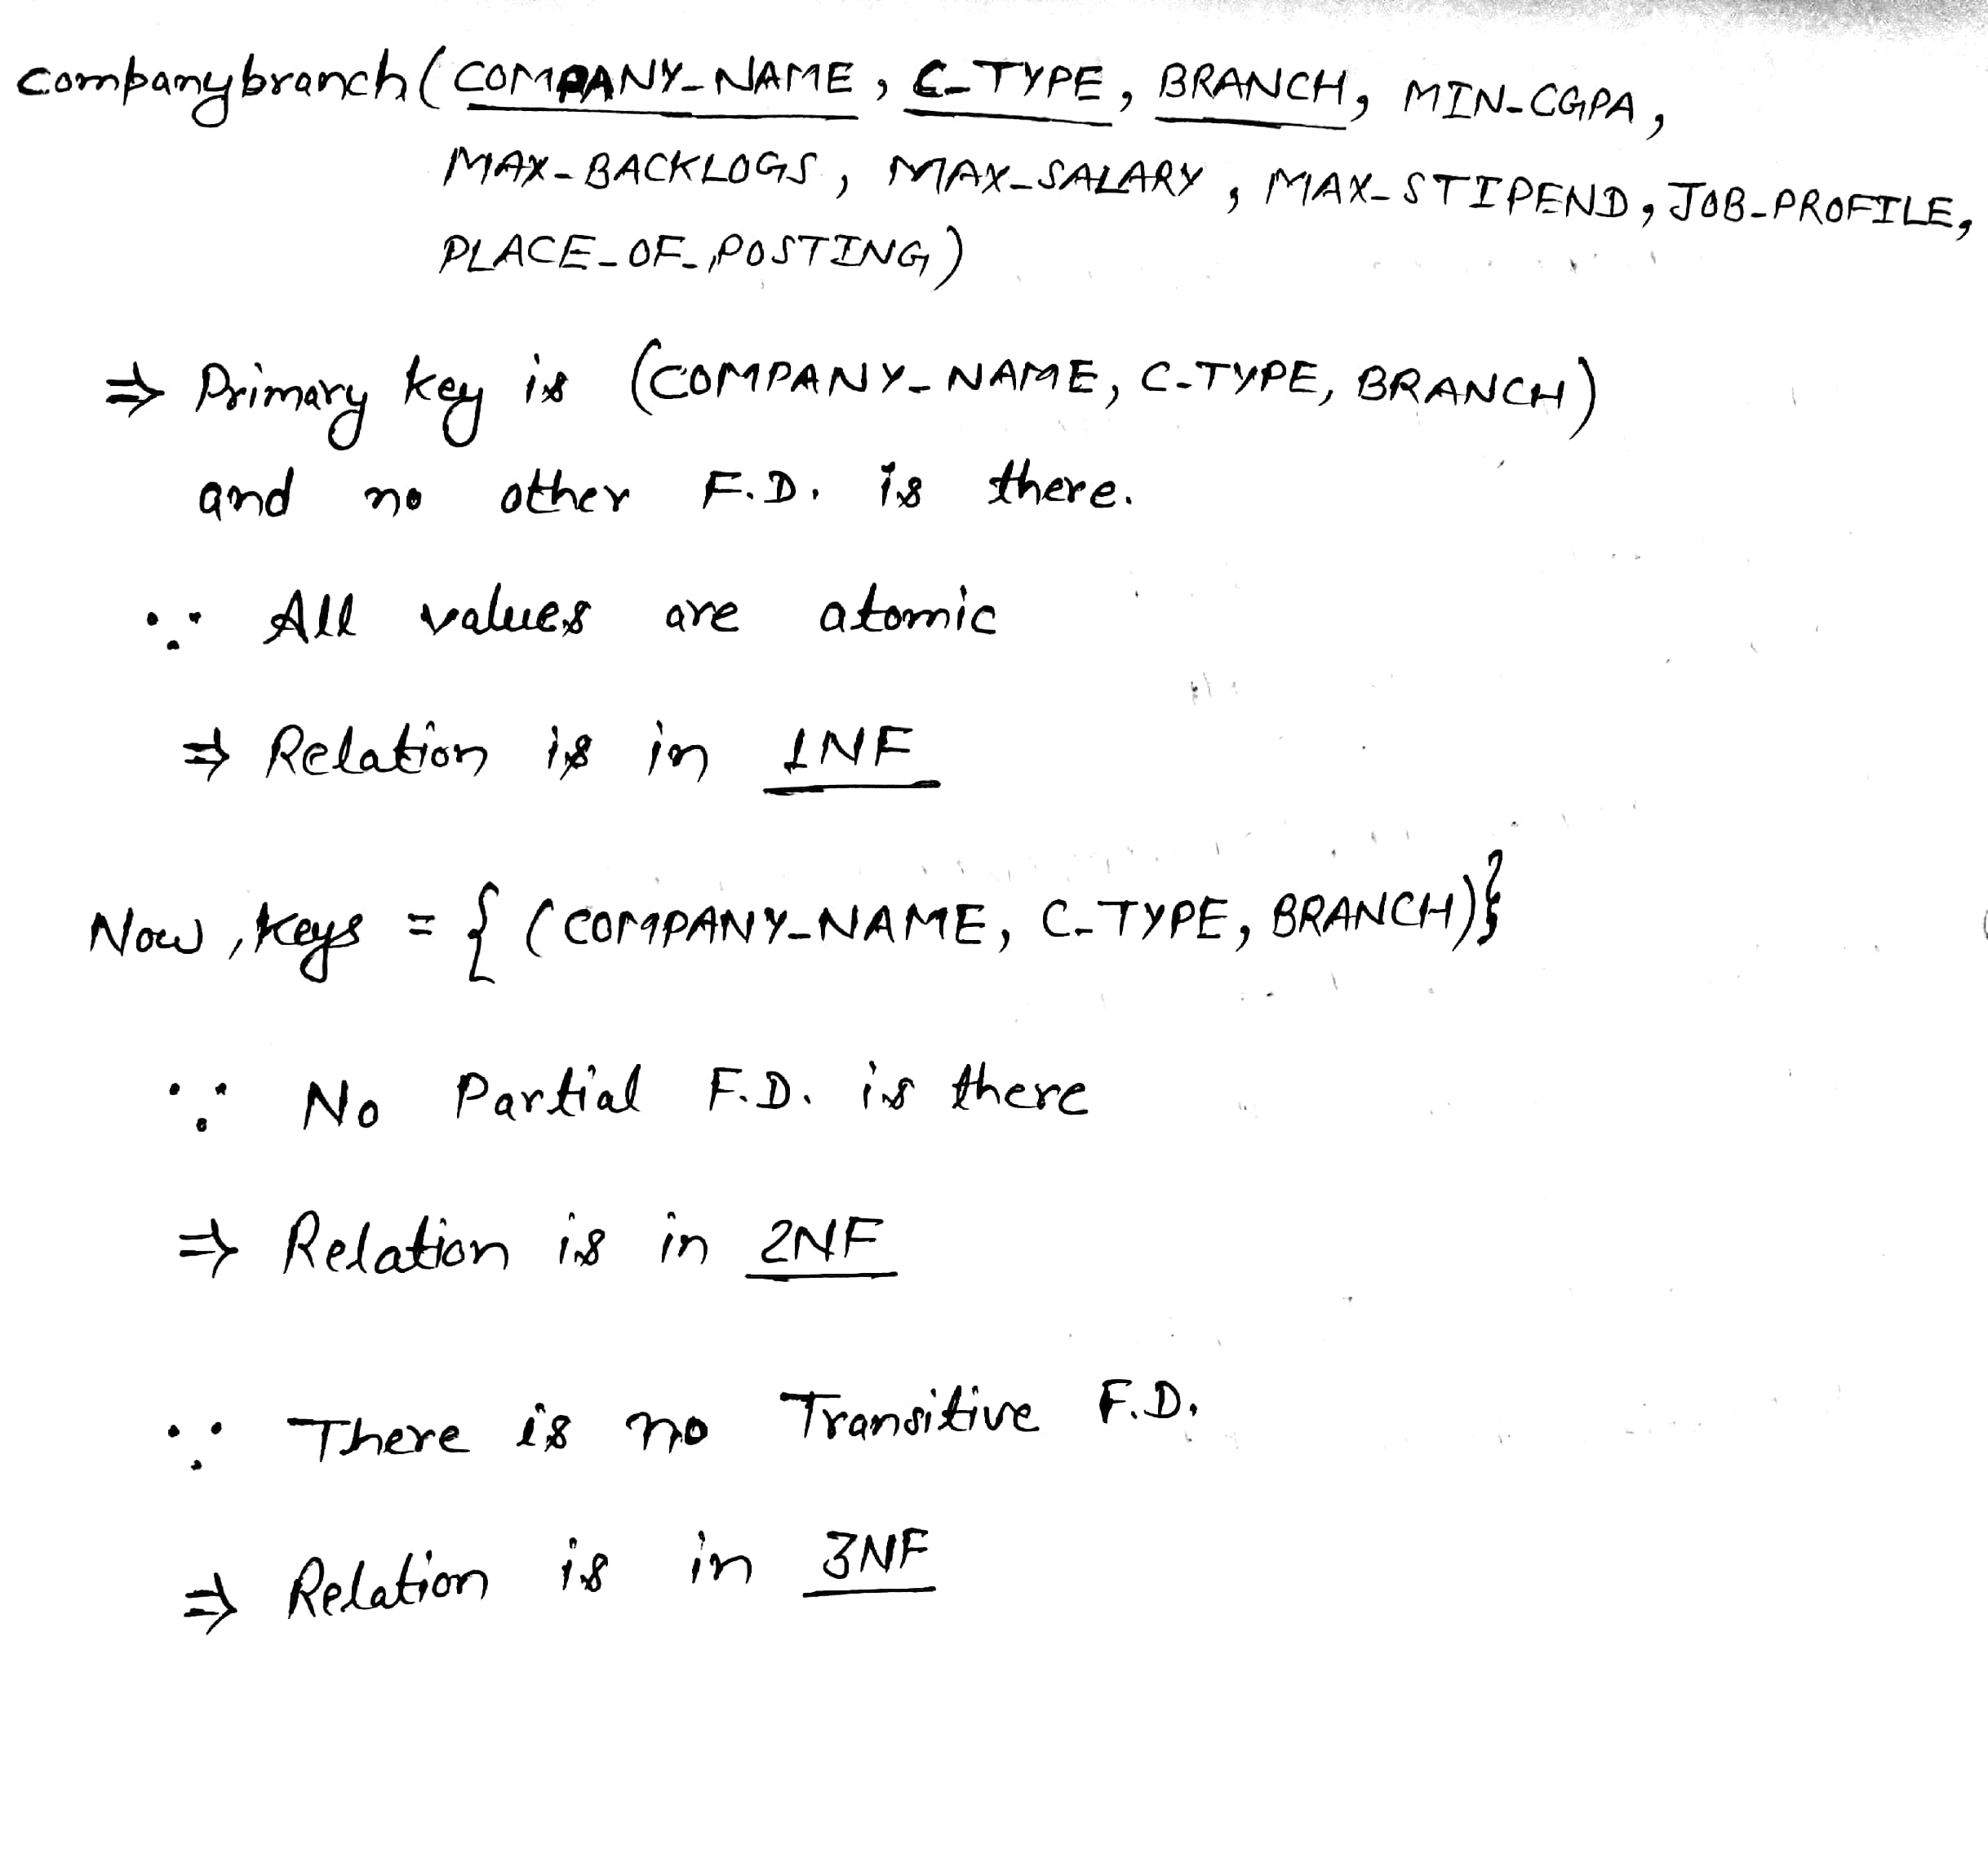 companybranch(COMPANY_NAME, C_TYPE, BRANCH, MIN-CGPA,
MAX-BACKLOGS, MAX_SALARY, MAX-STIPEND, JOB-PROFILE,
PLACE_OF_POSTING)
⇒ Primary key is (COMPANY_NAME, C-TYPE, BRANCH)
and no other F.D. is there.
∵ All values are atomic
⇒ Relation is in 1NF
Now, keys = { (COMPANY_NAME, C_TYPE, BRANCH)}
∵ No Partial F.D. is there
⇒ Relation is in 2NF
∵ There is no Transitive F.D.
⇒ Relation is in 3NF